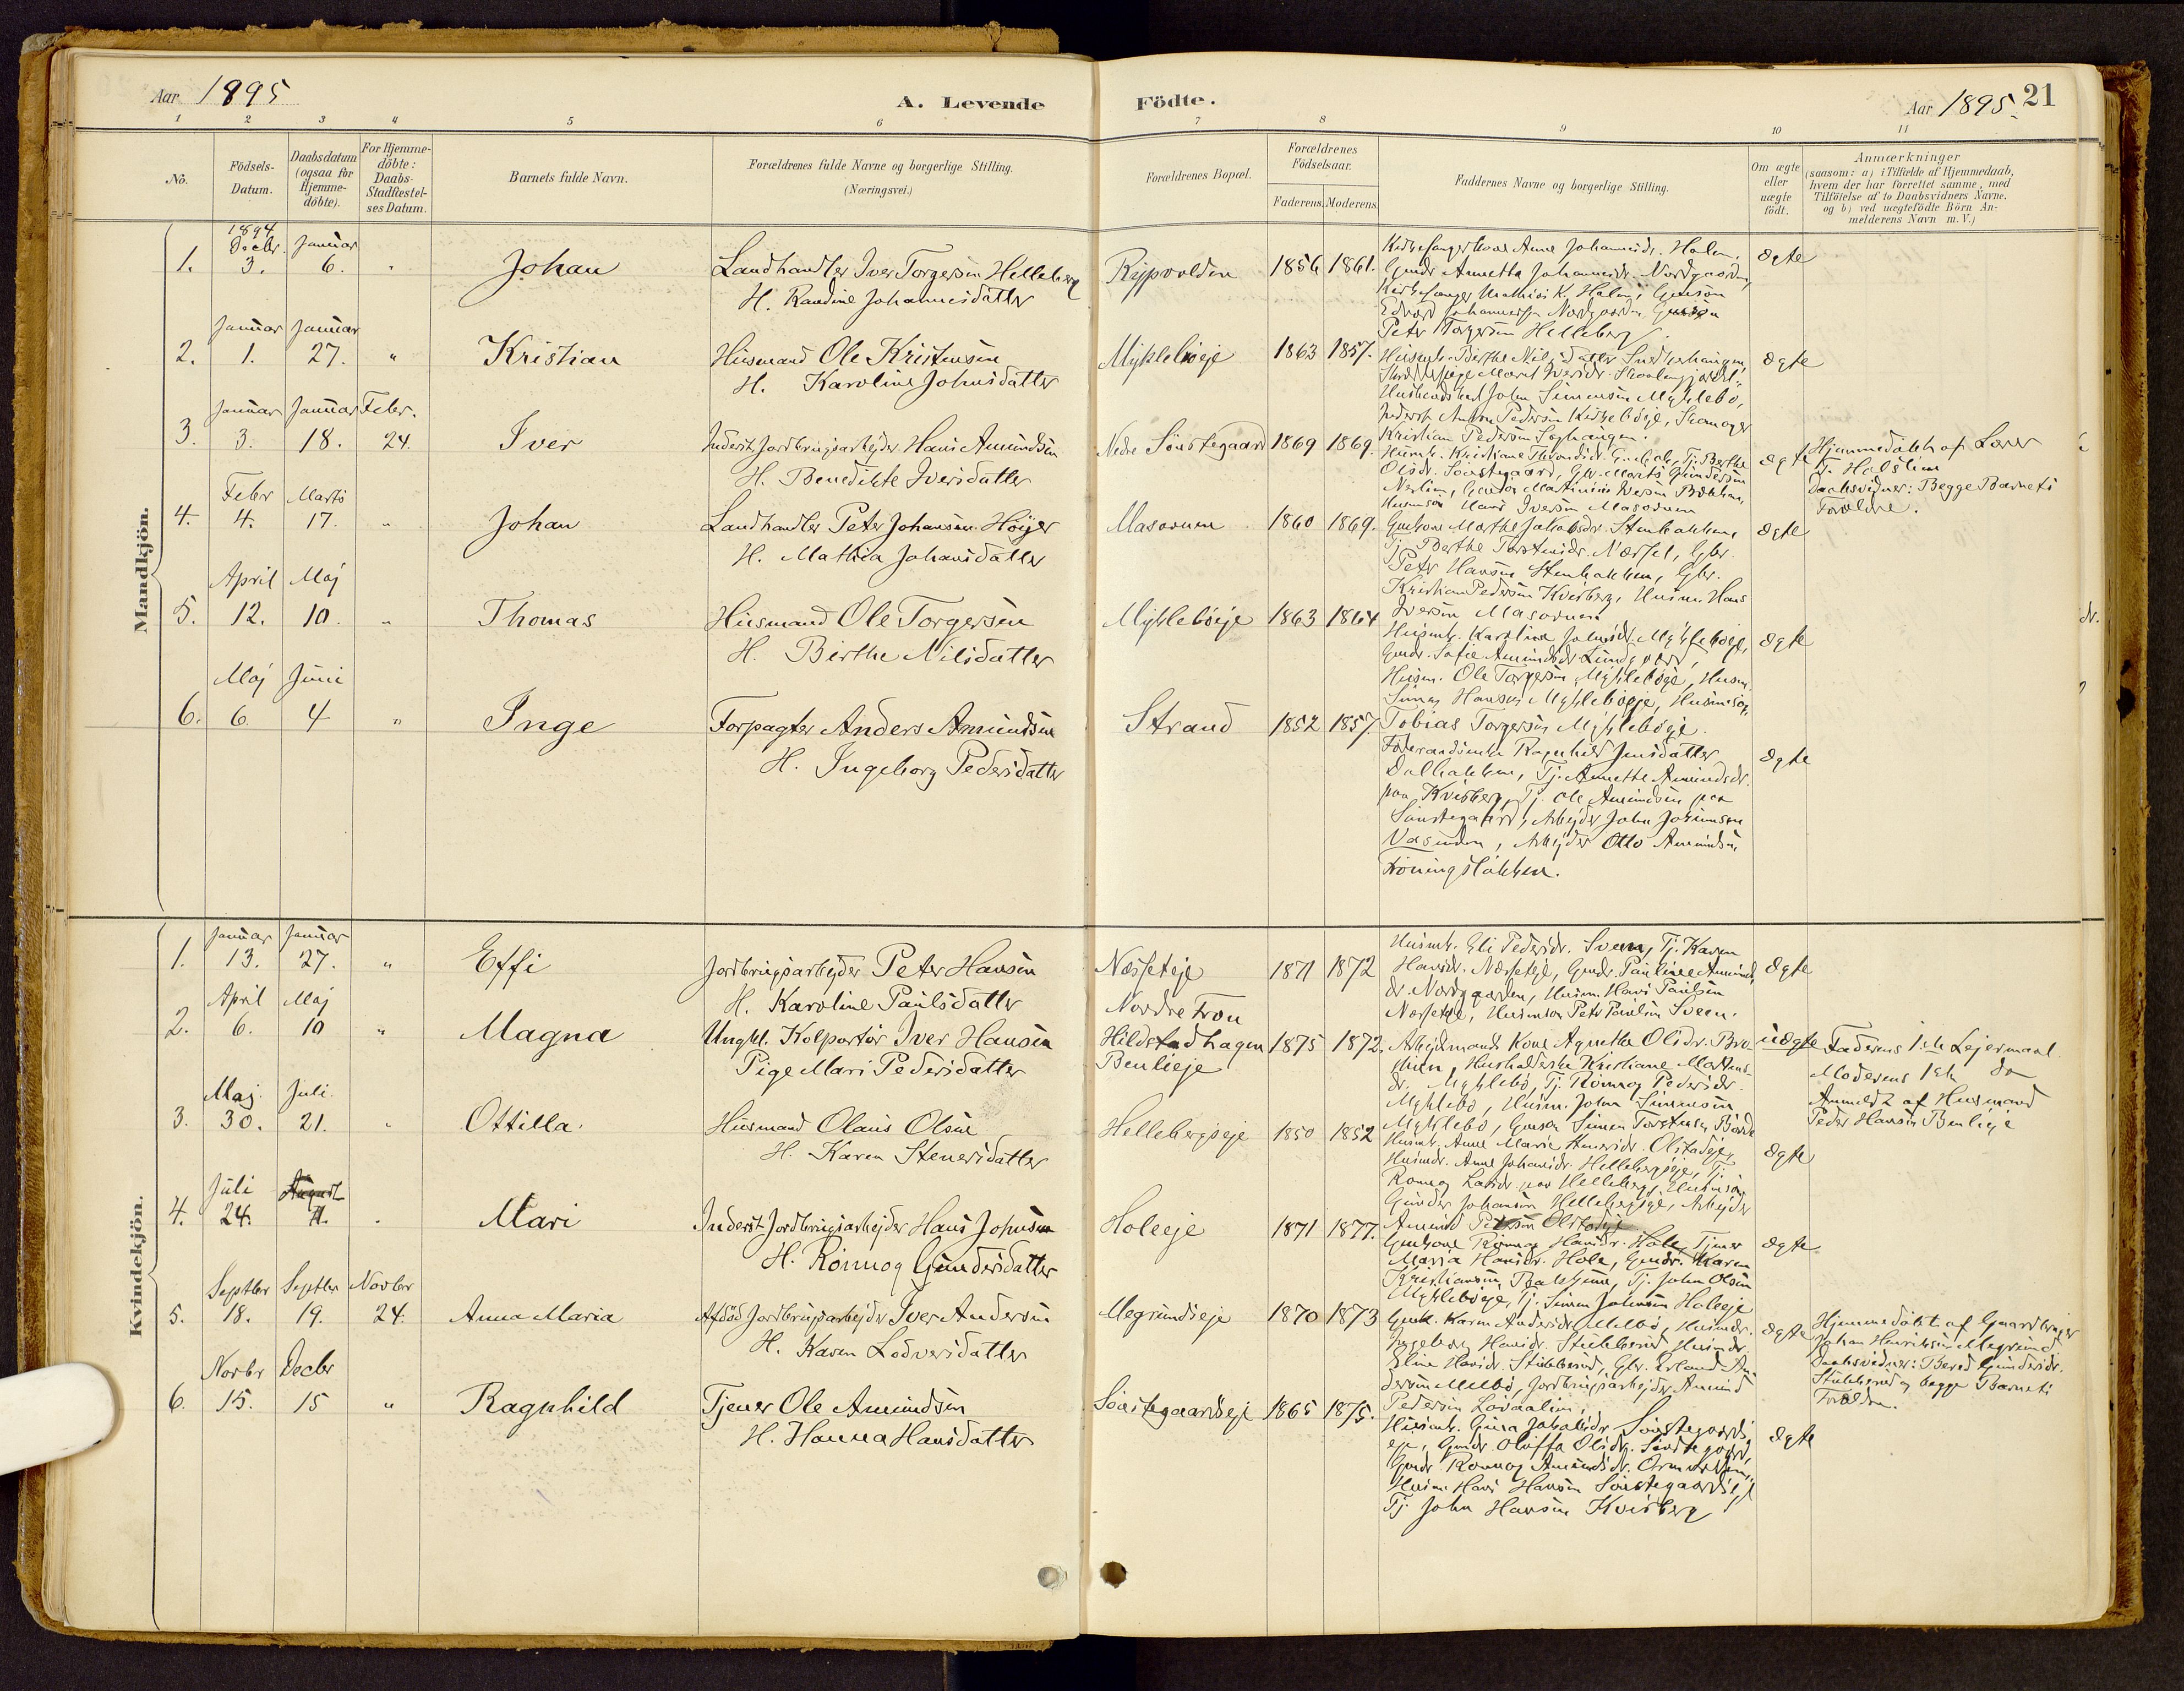 Aar 1895
A. Levende Födte.
Aar 1895. 21
1 2 3 4 5 6 7 8 9 10 11
No.
Födsels-
Datum.
Daabsdatum
(ogsaa for
Hjemme-
döbte).
For Hjemme-
döbte:
Daabs-
Stadfæstel-
ses Datum.
Barnets fulde Navn.
Forældrenes fulde Navne og borgerlige Stilling.
(Næringsvei.)
Forældrenes Bopæl.
Forældrenes
Födselsaar.
Faderens. Moderens.
Faddernes Navne og borgerlige Stilling.
Om ægte
eller
uægte
født.
Anmærkninger
(saasom: a) i Tilfælde af Hjemmedaab,
hvem der har forrettet samme, med
Tilföielse af to Daabsvidners Navne.
og b) ved uægtefödte Börn An-
melderens Navn m. V.)
Mandkjön.
1. 1894 Decbr. 3. Januar 6. " Johan
Landhandler Iver Torgersen Helleberg
H. Randine Johannesdatter
Rypvolden 1856 1861.
Kirkesangerkone Anne Johannesdr. Holen,
Gmdr. Annette Johannesdr. Nordgaarden,
Kirkesanger Mathias K. Holen, Gmsøn
Edvard Johannessen Nordgaarden, Gmsøn
Peter Torgersen Helleberg.
Ægte
2. Januar 1. Januar 27. " Kristian
Husmand Ole Kristensen
H. Karoline Johnsdatter
Myklebøeje 1863 1857.
Husmk. Berthe Nilsdatter
John Simensen Myklebø,
Kristian Pedersen
Ægte
3. Januar 3. Januar 18. Febr. 24. Iver
Inderst, Jordbrugsarbejder Hans Amundsen
H. Benedikte Iversdatter
Nedre Sønstegaard 1869 1869.
Olsdr. Sønstegaard,
Husmsøn Hans Iversen Masovnen
Ægte
Hjemmedøbt af Lærer
T. Halslien
Daabsvidner: Begge Barnets
Forældre.
4. Febr 4. Marts 17. " Johan
Landhandler Peter Johansen Høyer
H. Mathea Johansdatter
Masovnen 1860 1869.
Gmkone Marthe Jakobsdr. Stenbakken,
Tj. Berthe Torstensdr. Næsset, Gbr.
Peter Hansen Stenbakken, Gbr.
Kristian Pedersen Kvisberg, Husm. Hans
Iversen Masovnen
Ægte
5. April 12. Maj 10. " Thomas
Husmand Ole Torgersen
H. Birthe Nilsdatter
Myklebøeje 1863 1864
Husmk. Karoline Johnsdr. Myklebøeje,
Gmdr. Sofie Amundsdr. Lundgaard,
Husm. Ole Torgersen Myklebøeje, Husm.
Simen Hansen Myklebøeje, Husmsøn
Tobias Torgersen Myklebøeje.
Ægte
6. Maj 6. Juni 4 " Inge
Forpagter Anders Amundsen
H. Ingeborg Pedersdatter
Strand 1852 1857.
Ragnhild Jensdatter
Dalbakken, Tj. Annette Amundsdr.
paa Kvisberg, Tj. Ole Amundsen paa
Sønstegaard, Arbejder John Johnsen
Vasenden, Arbejder Otto Amundsen
Kvindekjön.
Ægte
1. Januar 13. Januar 27. " Effi
Jordbrugsarbejder Peter Hansen
H. Karoline Paulsdatter
Næsseteje 1871 1872
Husmk. Eli Pedersdr. Sveen, Tj. Karen
Hansdr. Næsseteje, Gmdr. Pauline Amunds-
dr. Nordgaarden, Husm. Hans Paulsen
Næsseteje, Husmsøn Peter Paulsen Sveen.
Ægte
2. April 6. Maj 10 " Magna
Ungkl. Kolportør Iver Hansen
Pige Mari Pedersdatter
Nordre Fron
Hildstadhagen
Benlieje
1875 1872.
Arbejdmands Kone Agnethe Olsdr. Bro-
Husholderske Kristiane Mortens-
dr. Myklebø, Tj. Rønnog Pedersdr.
Myklebø, Husm. John Simensen
Myklebø, Gmsøn Simen Torstensen
Uægte
Faderens 1ste Lejermaal
Moderens 1ste do
Anmeldt af Husmand
Peder Hansen Benlieje
3. Maj. 30. Juli. 21. " Ottilla.
Husmand Olaus Olsen
H. Karen Stenersdatter
Hellebergseje 1850 1852
Husmk. Anne Marie Stenersdr. Olstadeje,
Husmdr. Anne Johansdr. Hellebergseje, Tj.
Rønnog Larsdr. paa Helleberg, Husmsøn
Gunder Johansen Hellebergseje, Arbejder
Amund Pedersen Olstadeje
Ægte
4. Juli 24. August 11. " Mari
Inderst, Jordbrugsarbejder Hans Johnsen
H. Rønnog Gundersdatter
Holeeje 1871 1877.
Gmkone Rønnog Hansdr. Hole, Tjener
Maria Hansdr. Hole, Gmdr. Karen
Kristiansen Tj. John Olsen
Myklebøeje, Tj. Simen Johnsen Holeeje
Ægte.
5. Septbr 18. Septbr 19. Novbr 24. Anna Maria
Afdød Jordbrugsarbejder Iver Andersen
H. Karen Lodversdatter
Megrundseje 1870 1873
Gmk. Karen Andersdr. Melbø, Husmdr.
Ingeborg Hansdr. Stubberud, Husmdr.
Eline Hansdr. Stubberud, Gbr. Erland An-
dersen Melbø, Jordbrugsarbejder Amund
Pedersen
Ægte
Hjemmedøbt af Gaardbruger
Johan Henriksen Megrund
Daabsvidner: Bered Gundersdr.
Stubberud og begge Barnets
Forældre.
6. Novbr 15. Decbr 15 " Ragnhild
Tjener Ole Amundsen
H. Hanna Hansdatter
Sønstegaardseje 1865 1875.
Husmk. Guna Jakobsdr. Sønstegaards-
eje, Gmdr. Oliffa Olsdr. Sønstegaard,
Gmdr Rønnog Amundsdr.
Husm. Hans Hansen Sønstegaardseje
Tj. John Hansen Kvisberg
Ægte